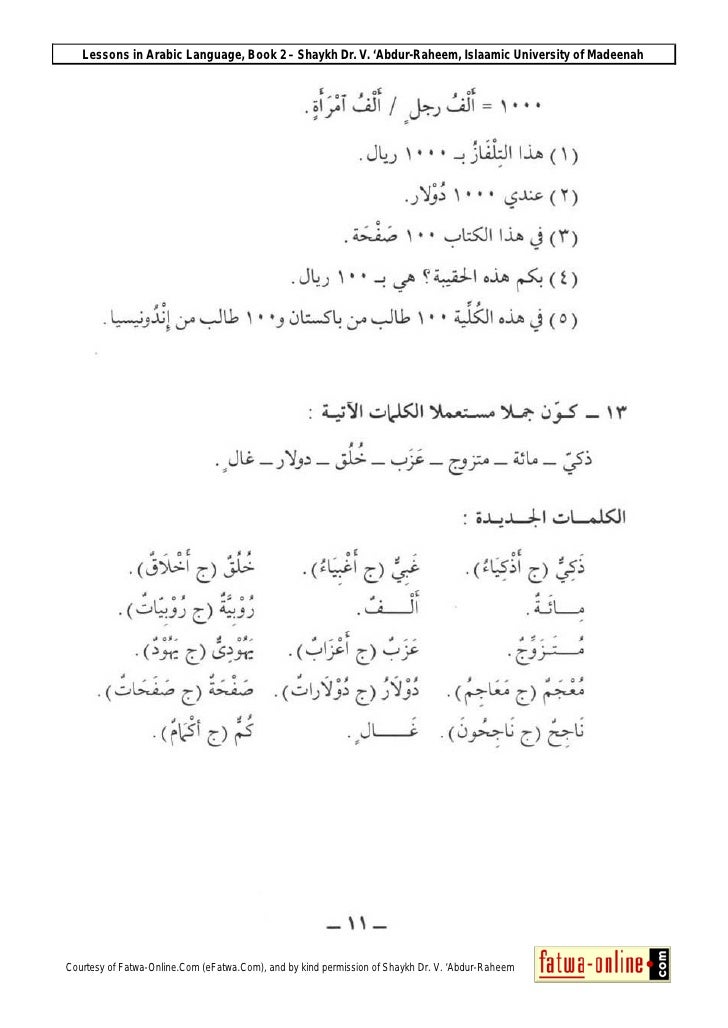 Lessons in Arabic Language, Book 2 – Shaykh Dr. V. ‘Abdur-Raheem, Islaamic University of Madeenah
١٠٠٠ = أَلْفُ رجلٍ / أَلْفُ ٱمْرَأَةٍ.
(١) هذا التِلْفَازُ بـ ١٠٠٠ ريال.
(٢) عندي ١٠٠٠ دُوْلار.
(٣) في هذا الكتاب ١٠٠ صَفْحَة.
(٤) بكم هذه الحقيبة؟ هي بـ ١٠٠ ريال.
(٥) في هذه الكُلِّية ١٠٠ طالب من باكستان و١٠٠ طالب من إِنْدُونيسيا.
١٣ ــ كـوّن جمـلا مستعملا الكلمات الآتيـة :
ذكيّ ــ مائة ــ متزوج ــ عَزَب ــ خُلُق ــ دولار ــ غالٍ.
الكلمـات الجـديـدة :
ذَكِيٌّ (ج أَذْكِيَاءُ). غَبِيٌّ (ج أَغْبِيَاءُ). خُلُقٌ (ج أَخْلَاقٌ).
مِـائَـةٌ. أَلْـــفٌ. رُوْبِيَّةٌ (ج رُوْبِيّاتٌ).
مُـتَـزَوِّجٌ. عَزَبٌ (ج أَعْزَابٌ). يَهُوْدِىٌّ (ج يَهُوْدٌ).
مُعْجَمٌ (ج مَعَاجِمُ). دُوْلَارٌ (ج دُوْلَارَاتٌ). صَفْحَةٌ (ج صَفَحَاتٌ).
نَاجِحٌ (ج نَاجِحُونَ). غَـــالٍ. كُمٌّ (ج أَكْمَامٌ).
ــ ١١ ــ
Courtesy of Fatwa-Online.Com (eFatwa.Com), and by kind permission of Shaykh Dr. V. ‘Abdur-Raheem
fatwa-online.com